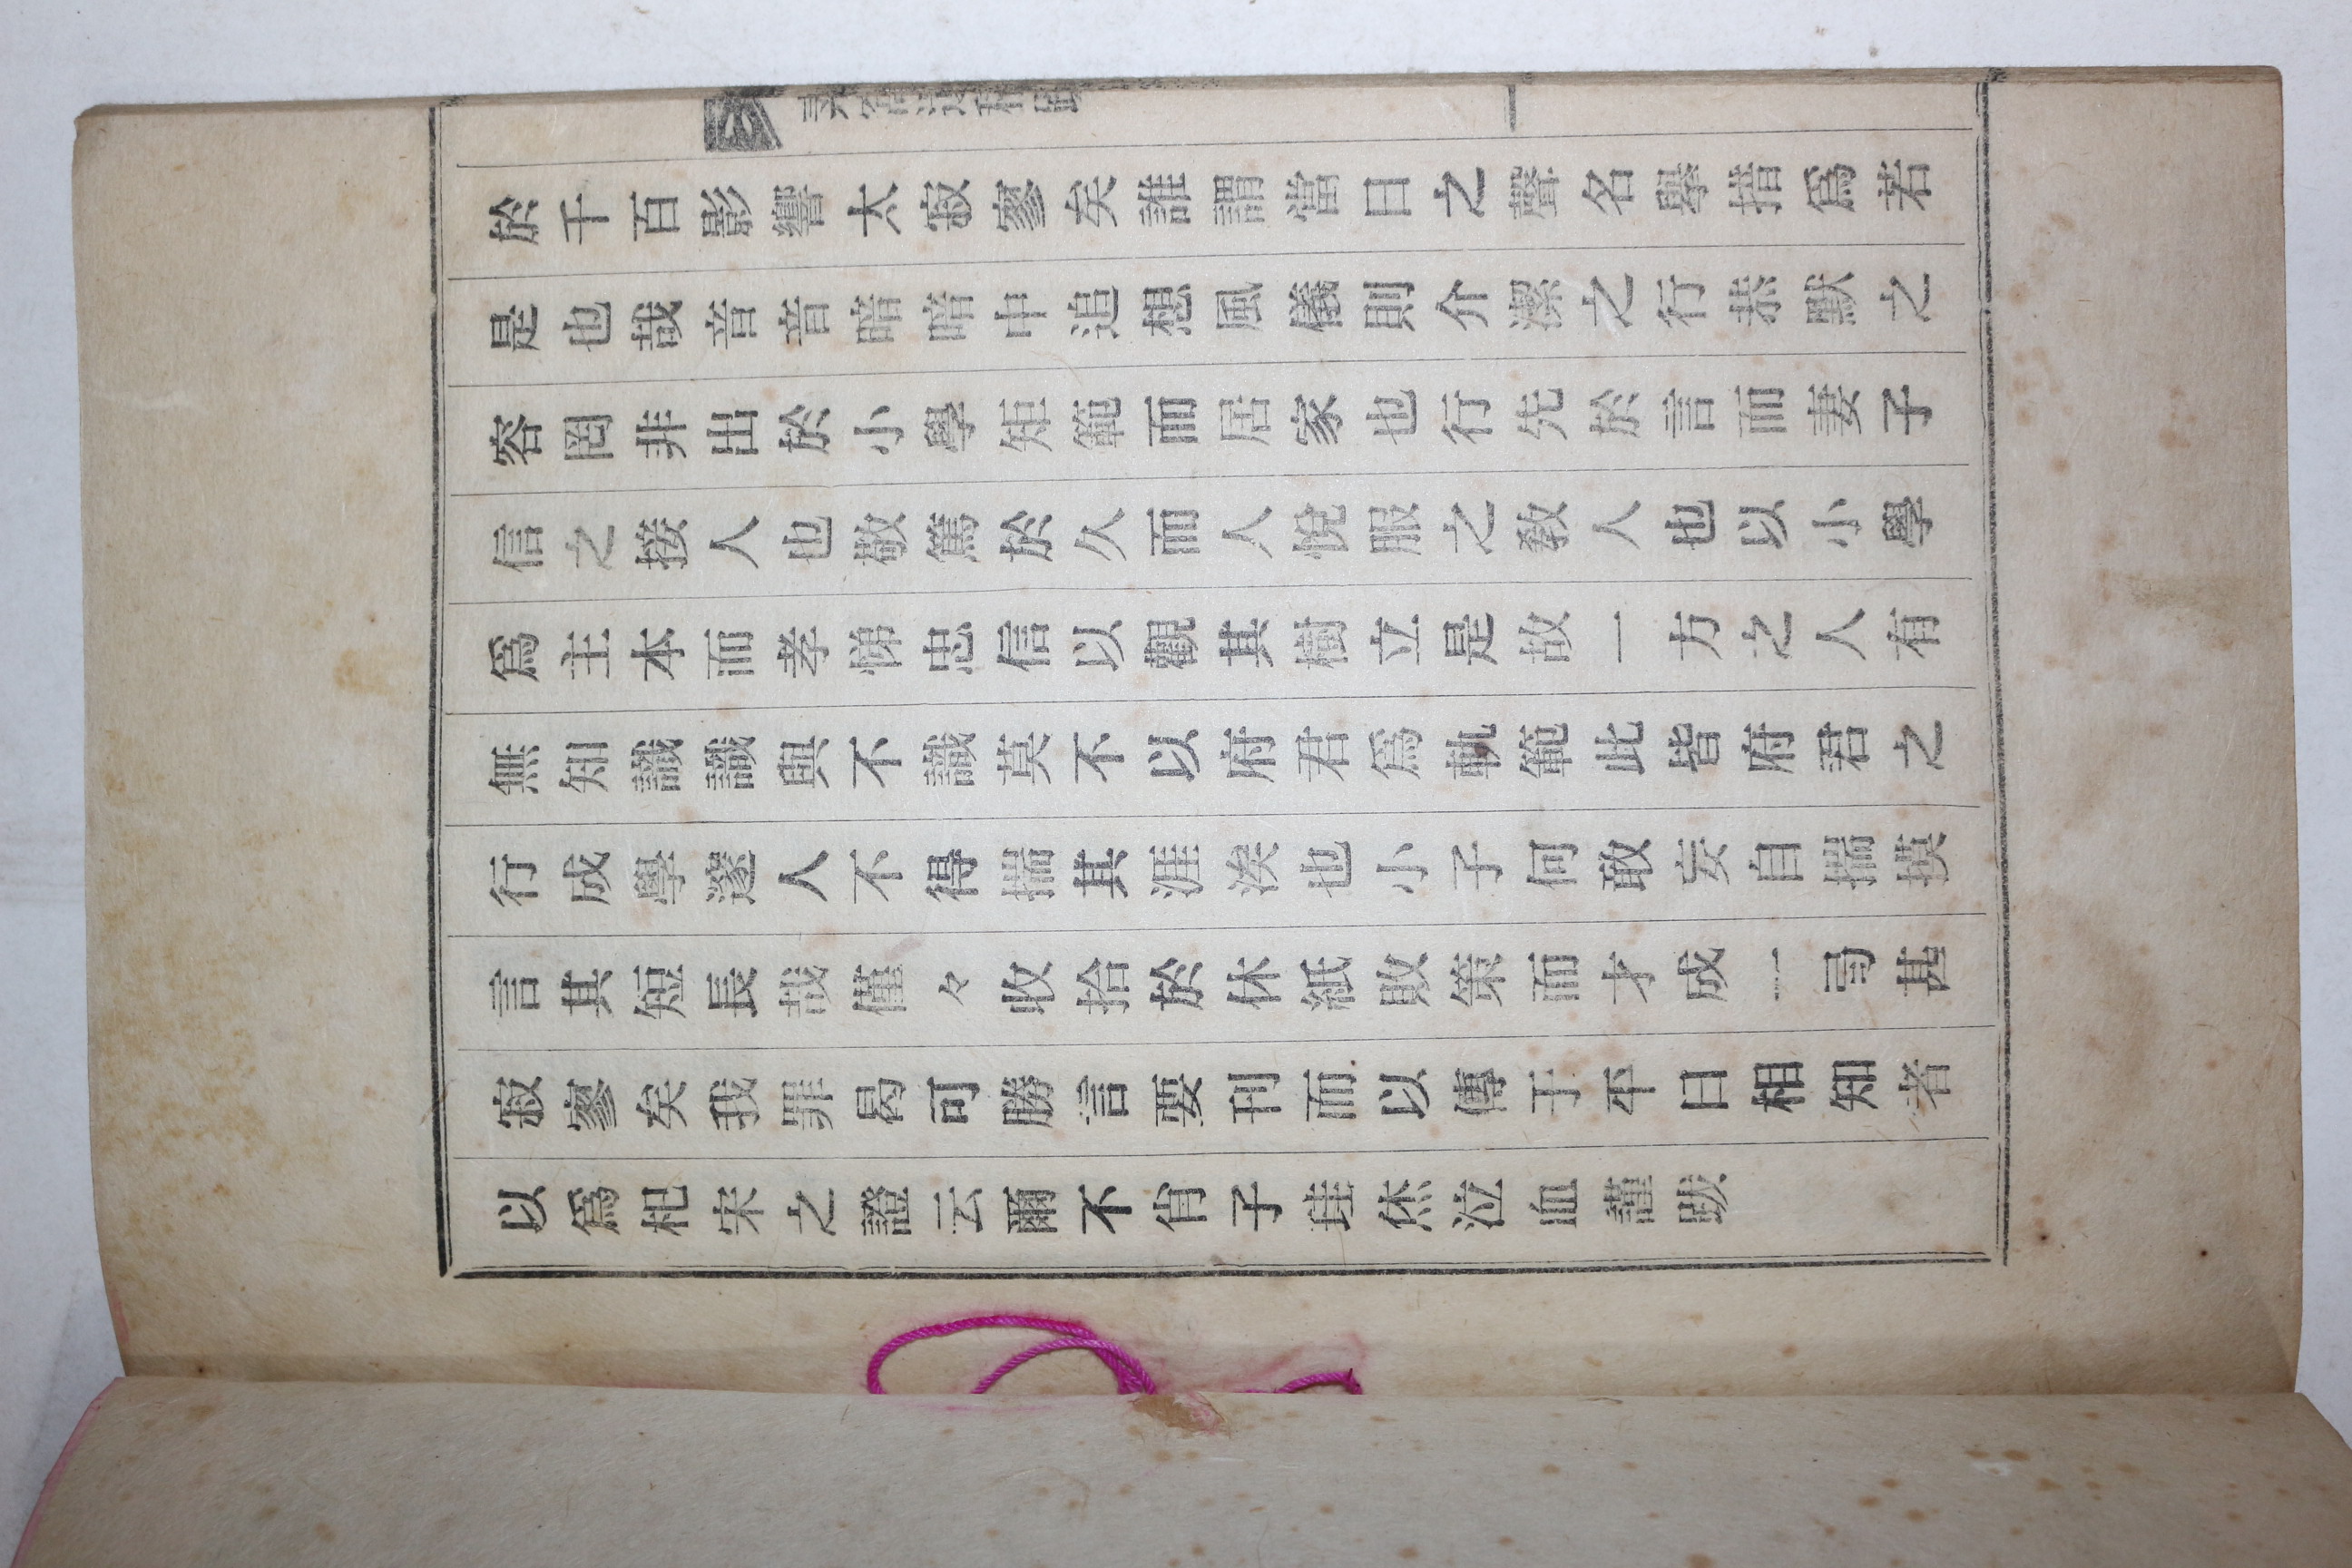 於千百影響太寂寥矣誰謂當日之聲名擧措爲若
是也哉音音暗暗中追想風儀則介潔之行恭默之
容罔非出於小學矩範而居家也行先於言而妻子
信之接人也敬篤於久而人悅服之敎人也以小學
爲主本而孝悌忠信以觀其樹立是故一方之人有
無知識識與不識莫不以府君爲執範此皆府君之
行成學邃人不得揣其涯涘也小子何敢妄自揣摸
言其短長哉僅々收拾於休紙敗策而才成一局甚
寂寥矣我罪曷可勝言要刊而以傳于平日相知者
以爲杞宋之證云爾不肖子珪烋泣血謹跋